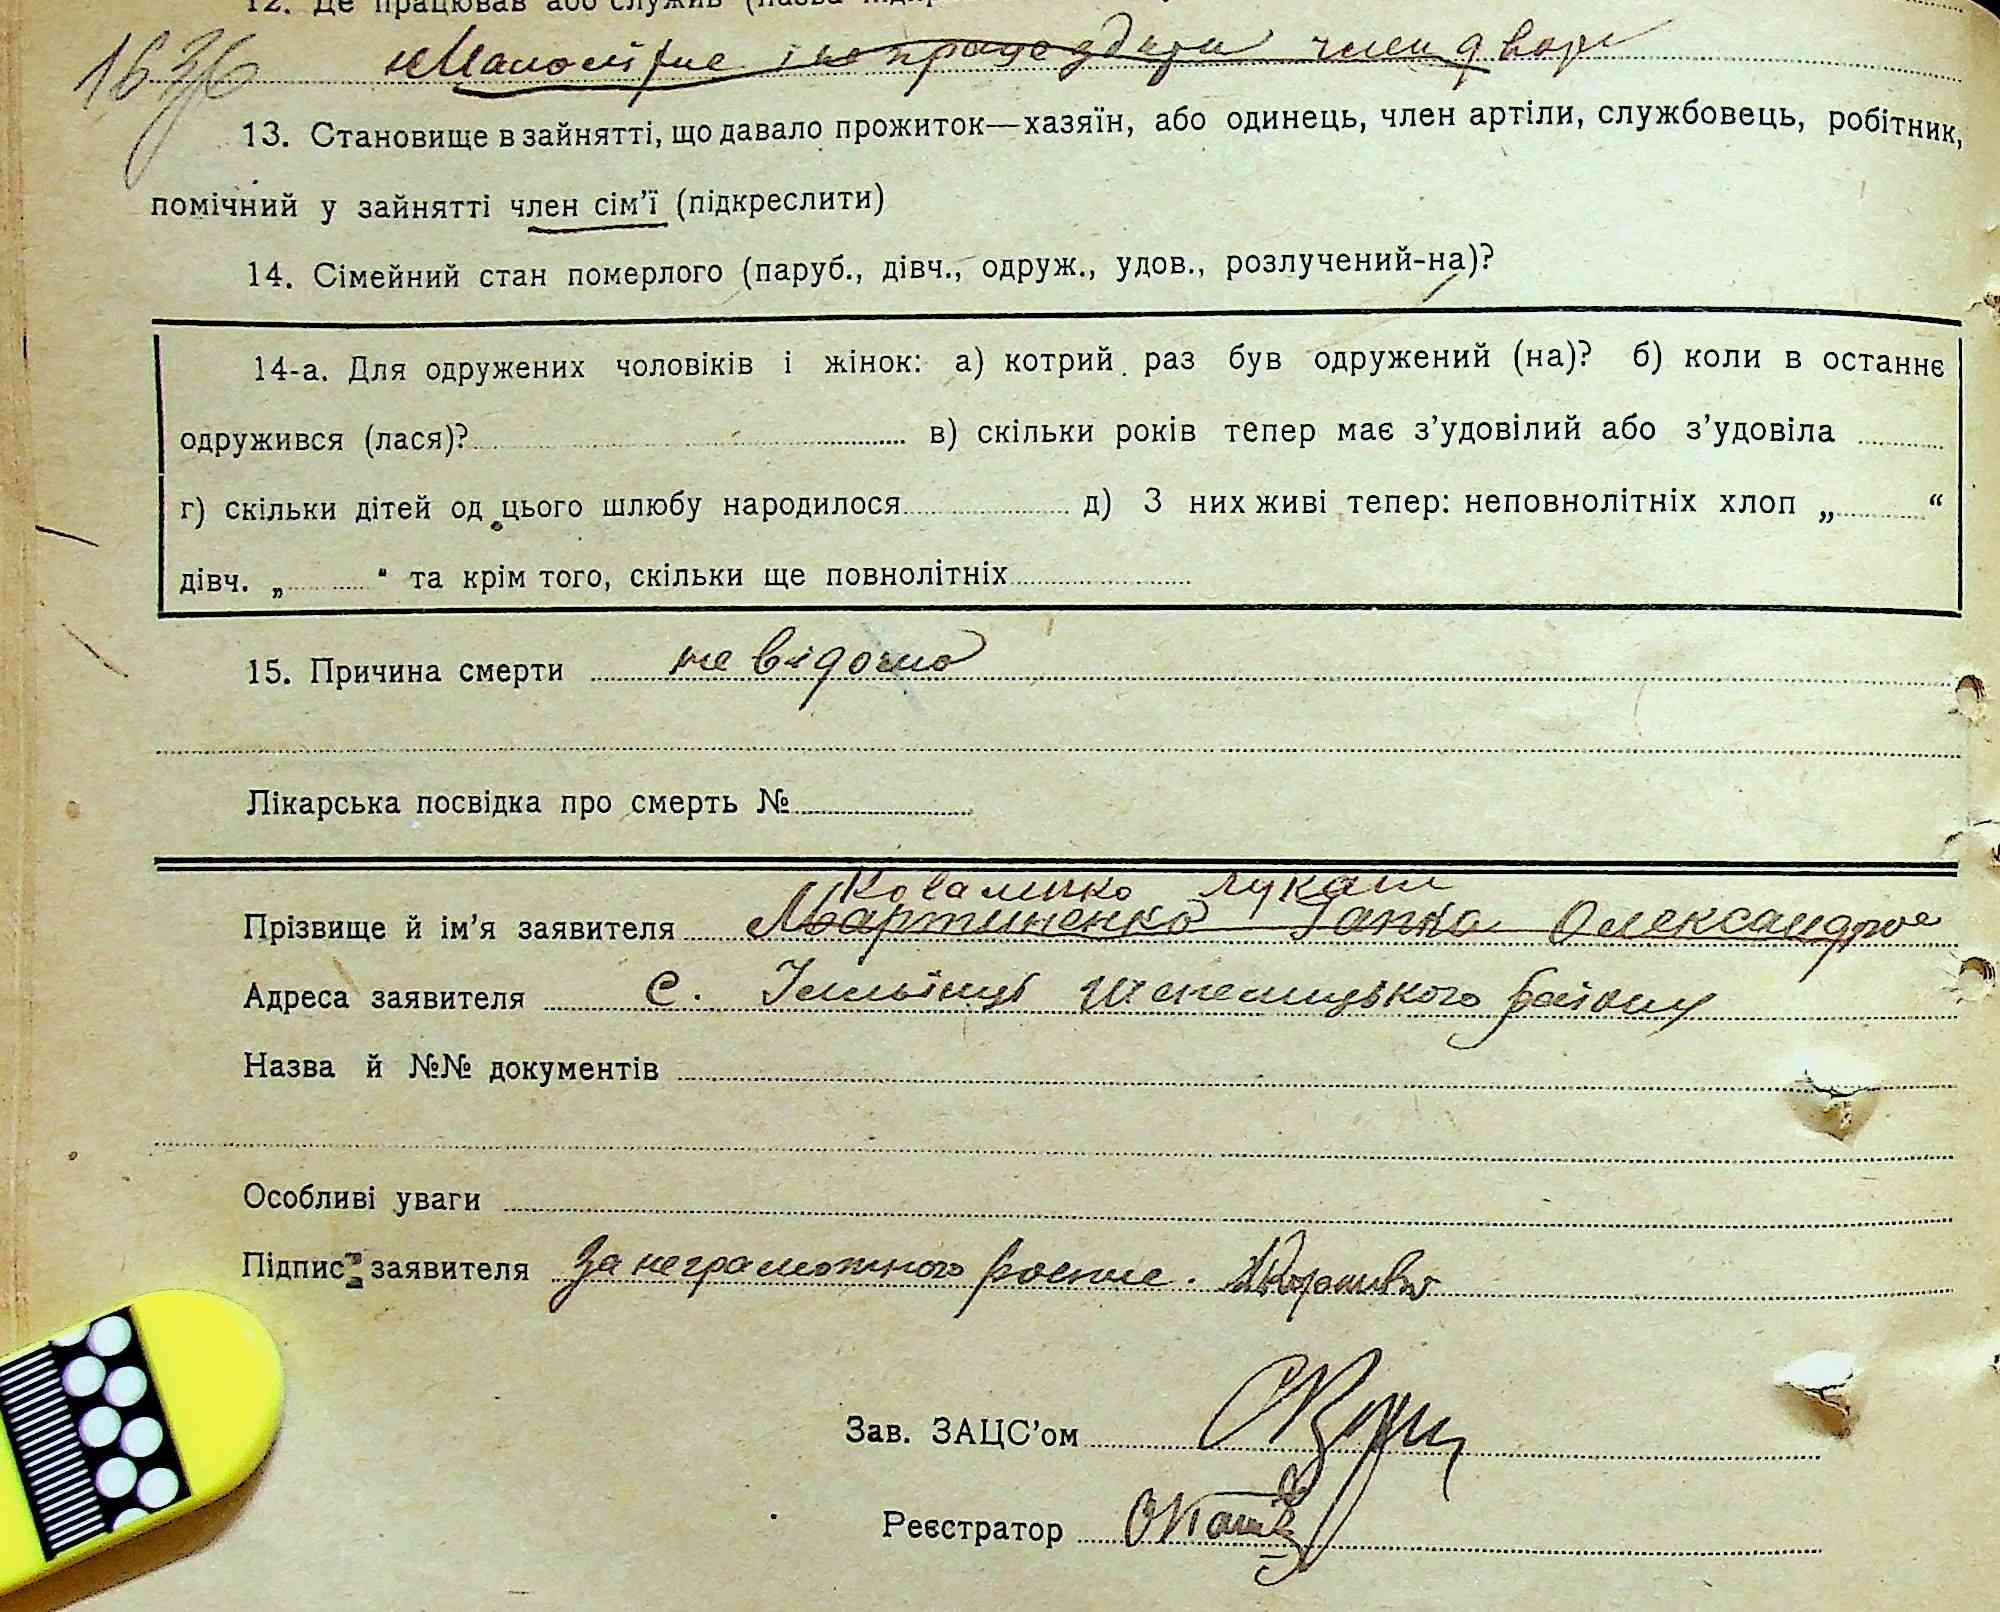 12. Де працював або служив (назва
1636 Малолітнє і не працездатн член двору
13. Становище в зайнятті, що давало прожиток—хазяїн, або одинець, член артіли, службовець, робітник,
помічний у зайнятті член сім'ї (підкреслити)
14. Сімейний стан померлого (паруб., дівч., одруж., удов., розлучений-на)?
14-а. Для одружених чоловіків і жінок: а) котрий раз був одружений (на)? б) коли в останнє
одружився (лася)? в) скільки років тепер має з'удовілий або з'удовіла
г) скільки дітей од цього шлюбу народилося д) З них живі тепер: неповнолітніх хлоп „ “
дівч. „ “ та крім того, скільки ще повнолітніх
15. Причина смерти не відома
Лікарська посвідка про смерть №
Коваленко Лукаш
Прізвище й ім'я заявителя Мартиненко Ганна Олександров
Адреса заявителя с. Іллінці району
Назва й №№ документів
Особливі уваги
Підпис заявителя За неграмотного роспис.
Зав. ЗАЦС'ом
Реєстратор